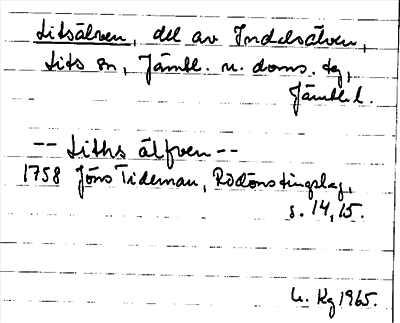 Litsälven, del av Indalsälven,
Lits sn, Jämtl. n. doms. tg,
Jämtl. l.
-- Liths älfven --
1758 Jöns Tideman, Rödöns tingslag,
s. 14, 15.
Kg 1965.